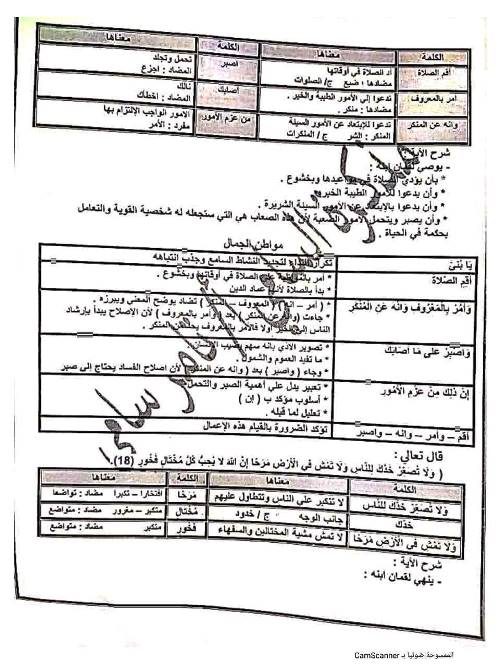 الكلمة معناها الكلمة معناها
أقم الصلاة أد الصلاة في أوقاتها اصبر تحمل وتجلد
مضادها : ضيع ج/ الصلوات المضاد : اجزع
امر بالمعروف تدعوا إلي الأمور الطيبة والخير . أصابك نالك
مضادها : منكر . المضاد : أخطأك
وانه عن المنكر تدعوا للإبتعاد عن الأمور السيئة من عزم الأمور الأمور الواجب الإلتزام بها
المنكر : الشر ج / المنكرات مفرد : الأمر
شرح الآية :
- يوصي لقمان ابنه :
* بأن يؤدي الصلاة في مواعيدها وبخشوع .
* وأن يدعوا للأمور الطيبة الخيرة
* وأن يدعوا بالإبتعاد عن الأمور السيئة الشريرة .
* وأن يصبر ويتحمل الأمور الصعبة لأن هذه الصعاب هي التي ستجعله له شخصية القوية والتعامل
بحكمة في الحياة .
مواطن الجمال
يَا بُنَيَّ تكرار النداء لتجديد النشاط السامع وجذب انتباهه
أقم الصَّلاة * أمر بالمحافظة على الصلاة في أوقاتها وبخشوع .
* بدأ بالصلاة لأنها عماد الدين
وَأْمُرْ بِالْمَعْرُوفِ وَانْهَ عَنِ الْمُنْكَرِ * ( أمر – انه ) ( المعروف – المنكر ) تضاد يوضح المعني ويبرزه .
* جاءت ( وانه عن المنكر ) بعد ( وأمر بالمعروف ) لأن الإصلاح يبدأ بإرشاد
الناس إلي الخير أولا فالأمر بالمعروف المنكر .
وَاصْبِرْ عَلَى مَا أَصَابَكَ * تصوير الأذي بأنه سهم يصيب الإنسان
* ما تفيد العموم والشمول .
* وجاء ( واصبر ) بعد ( وانه عن المنكر ) لأن اصلاح الفساد يحتاج إلي صبر
إِنَّ ذَلِكَ مِنْ عَزْمِ الأُمُورِ * تعبير يدل علي أهمية الصبر والتحمل
* أسلوب مؤكد ب ( إن )
* تعليل لما قبله .
أقم – وأمر – وانه – واصبر تؤكد الضرورة بالقيام هذه الإعمال
قال تعالي :
( وَلَا تُصَعِّرْ خَدَّكَ لِلنَّاسِ وَلَا تَمْشِ فِي الْأَرْضِ مَرَحًا إِنَّ اللَّهَ لَا يُحِبُّ كُلَّ مُخْتَالٍ فَخُورٍ (18).
الكلمة معناها الكلمة معناها
وَلَا تُصَعِّرْ خَدَّكَ لِلنَّاسِ لا تتكبر علي الناس وتتطاول عليهم مَرَحًا افتخارا – تكبرا مضاد : تواضعا
خدك جانب الوجه ج / خدود مُخْتَال متكبر – مغرور مضاد : متواضع
وَلَا تَمْشِ فِي الْأَرْضِ مَرَحًا لا تمش مشية المختالين والسفهاء فَخُور متكبر مضاد : متواضع
شرح الآية :
- ينهي لقمان ابنه :
الممسوحة ضوئيا بـ CamScanner